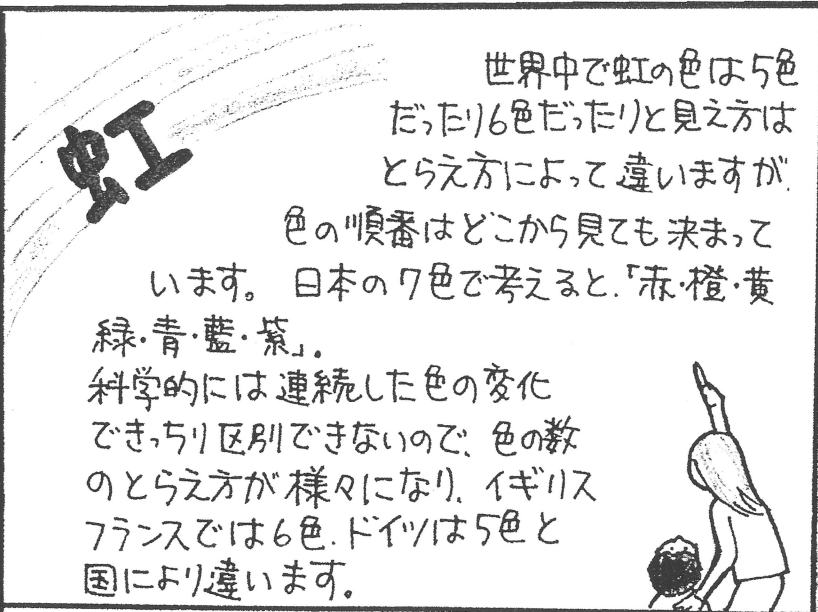 虹
世界中で虹の色は5色
だったり6色だったりと見え方は
とらえ方によって違いますが、
色の順番はどこから見ても決まって
います。 日本の7色で考えると、「赤・橙・黄
緑・青・藍・紫」。
科学的には連続した色の変化
できっちり区別できないので、色の数
のとらえ方が様々になり、イギリス
フランスでは6色、ドイツは5色と
国により違います。